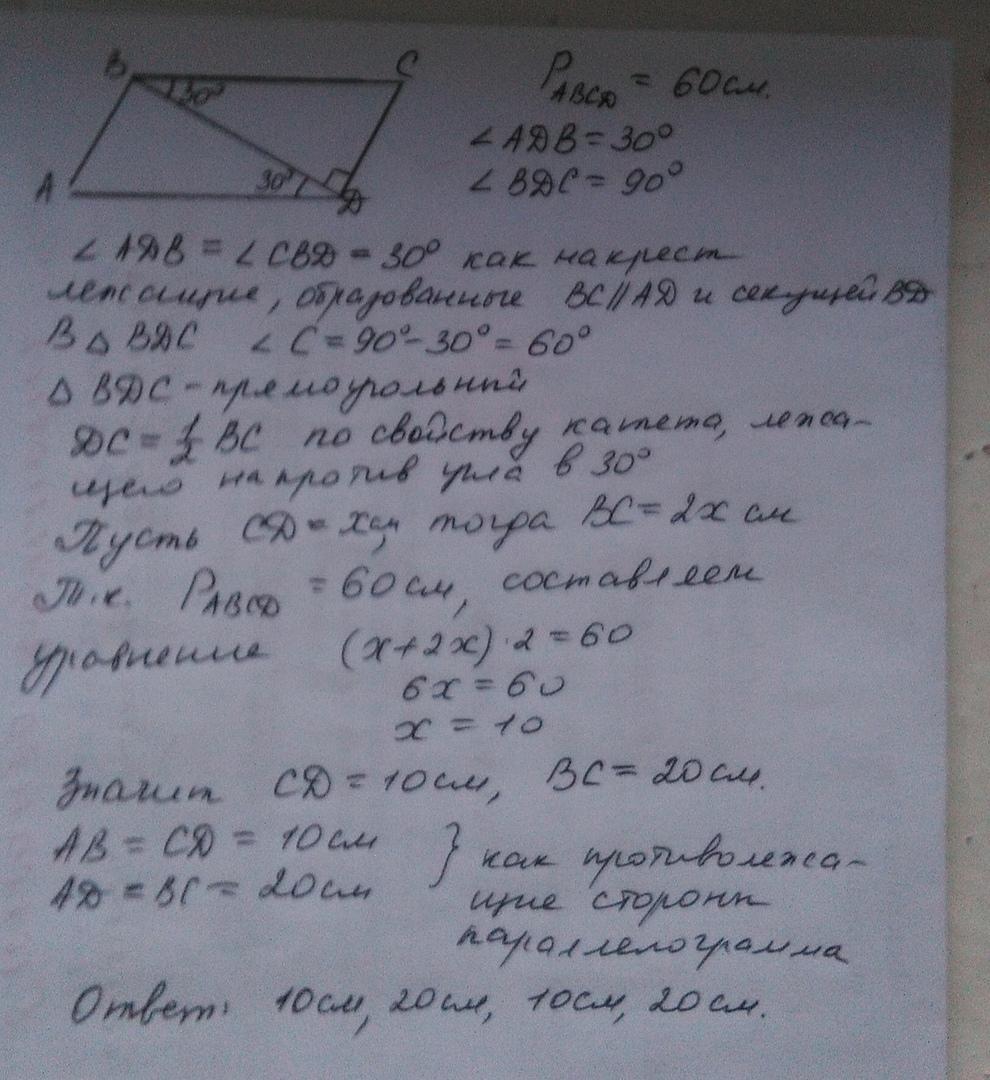 B C
30°
A 30° D
P_ABCD = 60см.
∠ADB = 30°
∠BDC = 90°
∠ADB = ∠CBD = 30° как накрест
лежащие, образованные BC//AD и секущей BD
В △ BDC ∠C = 90° - 30° = 60°
△ BDC - прямоугольный
DC = 1/2 BC по свойству катета, лежа-
щего напротив угла в 30°
Пусть CD = x см, тогда BC = 2x см
Т.к. P_ABCD = 60см, составляем
уравнение (x+2x)·2 = 60
6x = 60
x = 10
Значит CD = 10см, BC = 20см.
AB = CD = 10см } как противолежа-
AD = BC = 20см щие стороны
параллелограмма
Ответ: 10см, 20см, 10см, 20см.